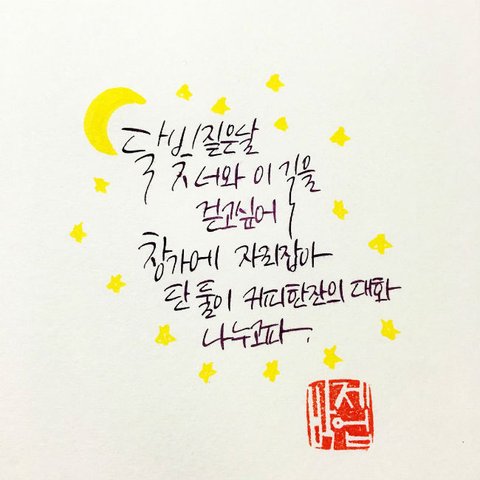 달빛 짙은날
너와 이 길을
걷고싶어
창가에 자리잡아
단 둘이 커피한잔의 대화
나누고파.